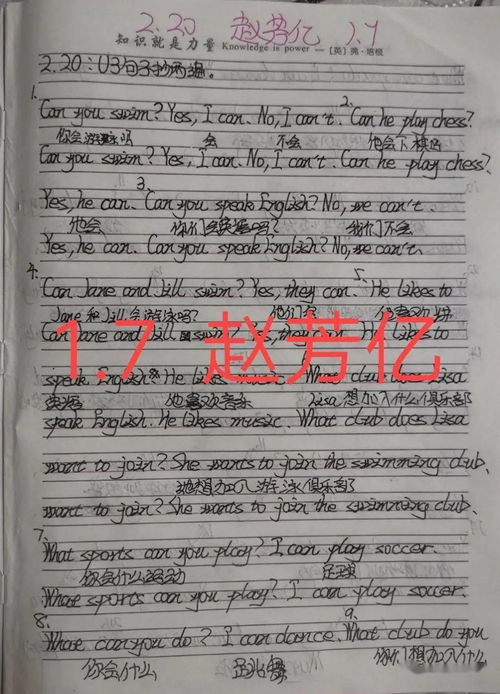 2.20 赵芳亿 1.7
知识就是力量 Knowledge is power — [英] 弗·培根
2.20:U3句子抄两遍。
1. 2.
Can you swim? Yes, I can. No, I can't. Can he play chess?
你会游泳吗 会 不会 他会下棋吗
Can you swim? Yes, I can. No, I can't. Can he play chess?
3.
Yes, he can. Can you speak English? No, we can't.
他会 你们会英语吗? 我们不会
Yes, he can. Can you speak English? No, we can't.
4. 5.
Can Jane and Jill swim? Yes, they can. He likes to
Jane和Jill会游泳吗? 他们会 他喜欢
Can Jane and Jill swim? Yes, they can. He likes to
1.7 赵芳亿
speak English. He likes music. What club does Lisa
英语 他喜欢音乐 Lisa想加入什么俱乐部
speak English. He likes music. What club does Lisa
want to join? She wants to join the swimming club.
她想加入游泳俱乐部
want to join? She wants to join the swimming club.
7.
What sports can you play? I can play soccer.
你会什么运动 足球
What sports can you play? I can play soccer.
8. 9.
What can you do? I can dance. What club do you
你会什么 我会跳舞 你们想加入什么